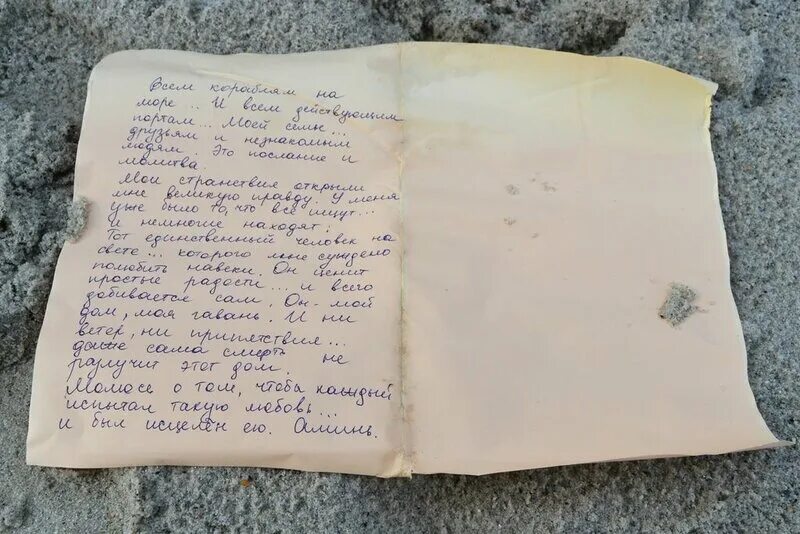 Всем кораблям на
море .. И всем действующим
портам... Моей семье...
друзьям и незнакомым
людям. Это послание и
молитва.
Мои странствия открыли
мне великую правду. У меня
уже было то, что все ищут...
и немногие находят:
Тот единственный человек на
свете... которого мне суждено
полюбить навеки. Он ценит
простые радости... и всего
добивается сам. Он - мой
дом, моя гавань. И ни
ветер, ни припятствия...
даже сама смерть не
разлучит этот дом.
Молюсь о том, чтобы каждый
испытал такую любовь...
и был исцелён ею. Аминь.